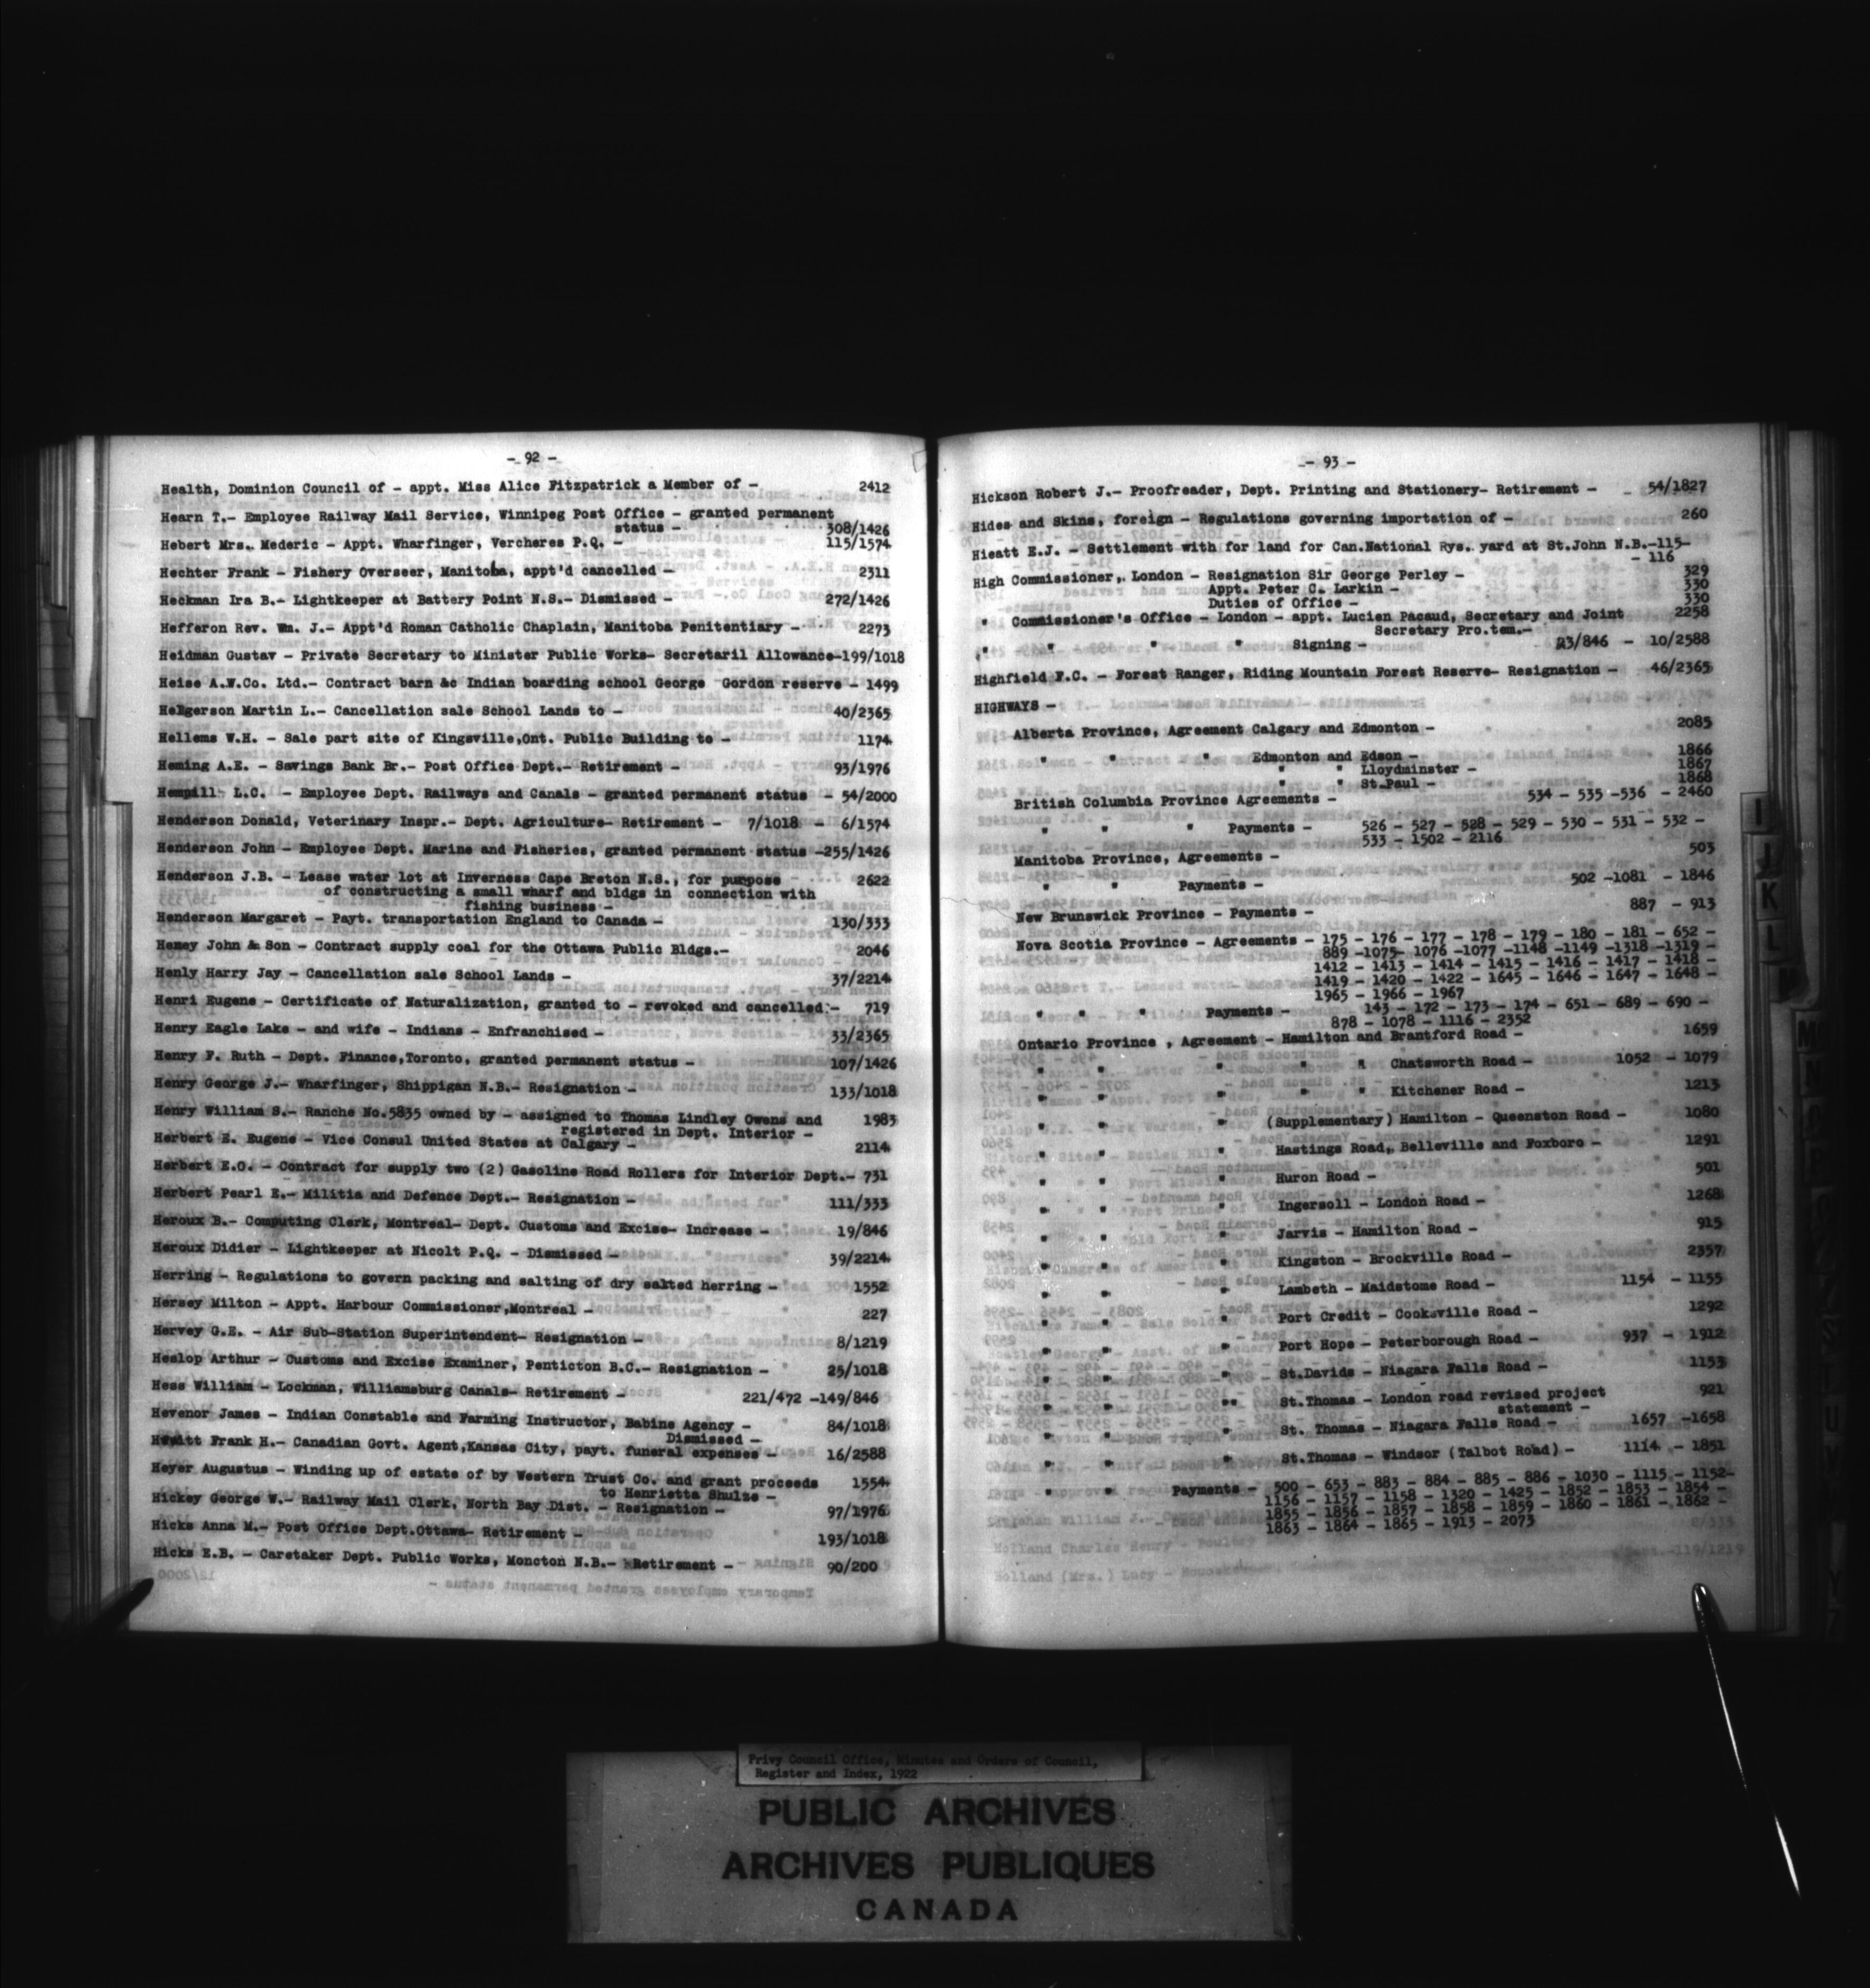 - 92 -
Health, Dominion Council of - appt. Miss Alice Fitzpatrick a Member of - 2412
Hearn T.- Employee Railway Mail Service, Winnipeg Post Office - granted permanent
status - 308/1426
Hebert Mrs. Mederic - Appt. Wharfinger, Vercheres P.Q. - 115/1574
Hechter Frank - Fishery Overseer, Manitoba, appt'd cancelled - 2311
Heckman Ira B.- Lightkeeper at Battery Point N.S.- Dismissed - 272/1426
Hefferon Rev. Wm. J.- Appt'd Roman Catholic Chaplain, Manitoba Penitentiary - 2273
Heidman Gustav - Private Secretary to Minister Public Works- Secretaril Allowance-199/1018
Heise A.W.Co. Ltd.- Contract barn &c Indian boarding school George Gordon reserve - 1499
Helgerson Martin L.- Cancellation sale School Lands to - 40/2365
Hellems W.H. - Sale part site of Kingsville,Ont. Public Building to - 1174
Heming A.E. - Savings Bank Br.- Post Office Dept.- Retirement - 93/1976
Hempill L.C. - Employee Dept. Railways and Canals - granted permanent status - 54/2000
Henderson Donald, Veterinary Inspr.- Dept. Agriculture- Retirement - 7/1018 - 6/1574
Henderson John - Employee Dept. Marine and Fisheries, granted permanent status -255/1426
Henderson J.B. - Lease water lot at Inverness Cape Breton N.S., for purpose 2622
of constructing a small wharf and bldgs in connection with
fishing business -
Henderson Margaret - Payt. transportation England to Canada - 130/333
Heney John & Son - Contract supply coal for the Ottawa Public Bldgs.- 2046
Henly Harry Jay - Cancellation sale School Lands - 37/2214
Henri Eugene - Certificate of Naturalization, granted to - revoked and cancelled - 719
Henry Eagle Lake - and wife - Indians - Enfranchised - 33/2365
Henry F. Ruth - Dept. Finance,Toronto, granted permanent status - 107/1426
Henry George J.- Wharfinger, Shippigan N.B.- Resignation - 133/1018
Henry William S.- Ranche No.5835 owned by - assigned to Thomas Lindley Owens and 1983
registered in Dept. Interior -
Herbert E. Eugene - Vice Consul United States at Calgary - 2114
Herbert E.O. - Contract for supply two (2) Gasoline Road Rollers for Interior Dept.- 731
Herbert Pearl E.- Militia and Defence Dept.- Resignation - 111/333
Heroux B.- Computing Clerk, Montreal- Dept. Customs and Excise- Increase - 19/846
Heroux Didier - Lightkeeper at Nicolt P.Q. - Dismissed - 39/2214
Herring - Regulations to govern packing and salting of dry salted herring - 1552
Hersey Milton - Appt. Harbour Commissioner,Montreal - 227
Hervey G.E. - Air Sub-Station Superintendent- Resignation - 8/1219
Heslop Arthur - Customs and Excise Examiner, Penticton B.C.- Resignation - 25/1018
Hess William - Lockman, Williamsburg Canals- Retirement - 221/472 -149/846
Hevenor James - Indian Constable and Farming Instructor, Babine Agency - 84/1018
Dismissed -
Hewitt Frank H.- Canadian Govt. Agent,Kansas City, payt. funeral expenses - 16/2588
Heyer Augustus - Winding up of estate of by Western Trust Co. and grant proceeds 1554
to Henrietta Shulze -
Hickey George W.- Railway Mail Clerk, North Bay Dist. - Resignation - 97/1976
Hicks Anna M.- Post Office Dept.Ottawa- Retirement - 193/1018
Hicks E.B. - Caretaker Dept. Public Works, Moncton N.B.- Retirement - 90/200
- 93 -
Hickson Robert J.- Proofreader, Dept. Printing and Stationery- Retirement - 54/1827
Hides and Skins, foreign - Regulations governing importation of - 260
Hieatt E.J. - Settlement with for land for Can.National Rys. yard at St.John N.B.-115-
- 116
High Commissioner, London - Resignation Sir George Perley - 329
Appt. Peter C. Larkin - 330
Duties of Office - 330
" Commissioner's Office - London - appt. Lucien Pacaud, Secretary and Joint 2258
Secretary Pro.tem.-
" " " " Signing - 23/846 - 10/2588
Highfield F.C. - Forest Ranger, Riding Mountain Forest Reserve- Resignation - 46/2365
HIGHWAYS -
Alberta Province, Agreement Calgary and Edmonton - 2085
" " " Edmonton and Edson - 1866
" " Lloydminster - 1867
" " St.Paul - 1868
British Columbia Province Agreements - 534 - 535 -536 - 2460
" " " Payments - 526 - 527 - 528 - 529 - 530 - 531 - 532 -
533 - 1502 - 2116
Manitoba Province, Agreements - 503
" " Payments - 502 -1081 - 1846
New Brunswick Province - Payments - 887 - 913
Nova Scotia Province - Agreements - 175 - 176 - 177 - 178 - 179 - 180 - 181 - 652 -
889 -1075- 1076 -1077 -1148 -1149 -1318 -1319 -
1412 - 1413 - 1414 - 1415 - 1416 - 1417 - 1418 -
1419 - 1420 - 1422 - 1645 - 1646 - 1647 - 1648 -
1965 - 1966 - 1967
" " " Payments - 143 - 172 - 173 - 174 - 651 - 689 - 690 -
878 - 1078 - 1116 - 2352
Ontario Province , Agreement - Hamilton and Brantford Road - 1659
" " " " " Chatsworth Road - 1052 - 1079
" " " " " Kitchener Road - 1213
" " " (Supplementary) Hamilton - Queenston Road - 1080
" " " Hastings Road, Belleville and Foxboro - 1291
" " " Huron Road - 501
" " " Ingersoll - London Road - 1268
" " " Jarvis - Hamilton Road - 915
" " " Kingston - Brockville Road - 2357
" " " Lambeth - Maidstome Road - 1154 - 1155
" " " Port Credit - Cooksville Road - 1292
" " " Port Hope - Peterborough Road - 937 - 1912
" " " St.Davids - Niagara Falls Road - 1153
" " " St.Thomas - London road revised project 921
statement -
" " " St. Thomas - Niagara Falls Road - 1657 -1658
" " " St.Thomas - Windsor (Talbot Road) - 1114 - 1851
" " Payments - 500 - 653 - 883 - 884 - 885 - 886 - 1030 - 1115 - 1152-
1156 - 1157 - 1158 - 1320 - 1425 - 1852 - 1853 - 1854 -
1855 - 1856 - 1857 - 1858 - 1859 - 1860 - 1861 - 1862 -
1863 - 1864 - 1865 - 1913 - 2073
I
J
K
L
M
Privy Council Office, Minutes and Orders of Council,
Register and Index, 1922
PUBLIC ARCHIVES
ARCHIVES PUBLIQUES
CANADA